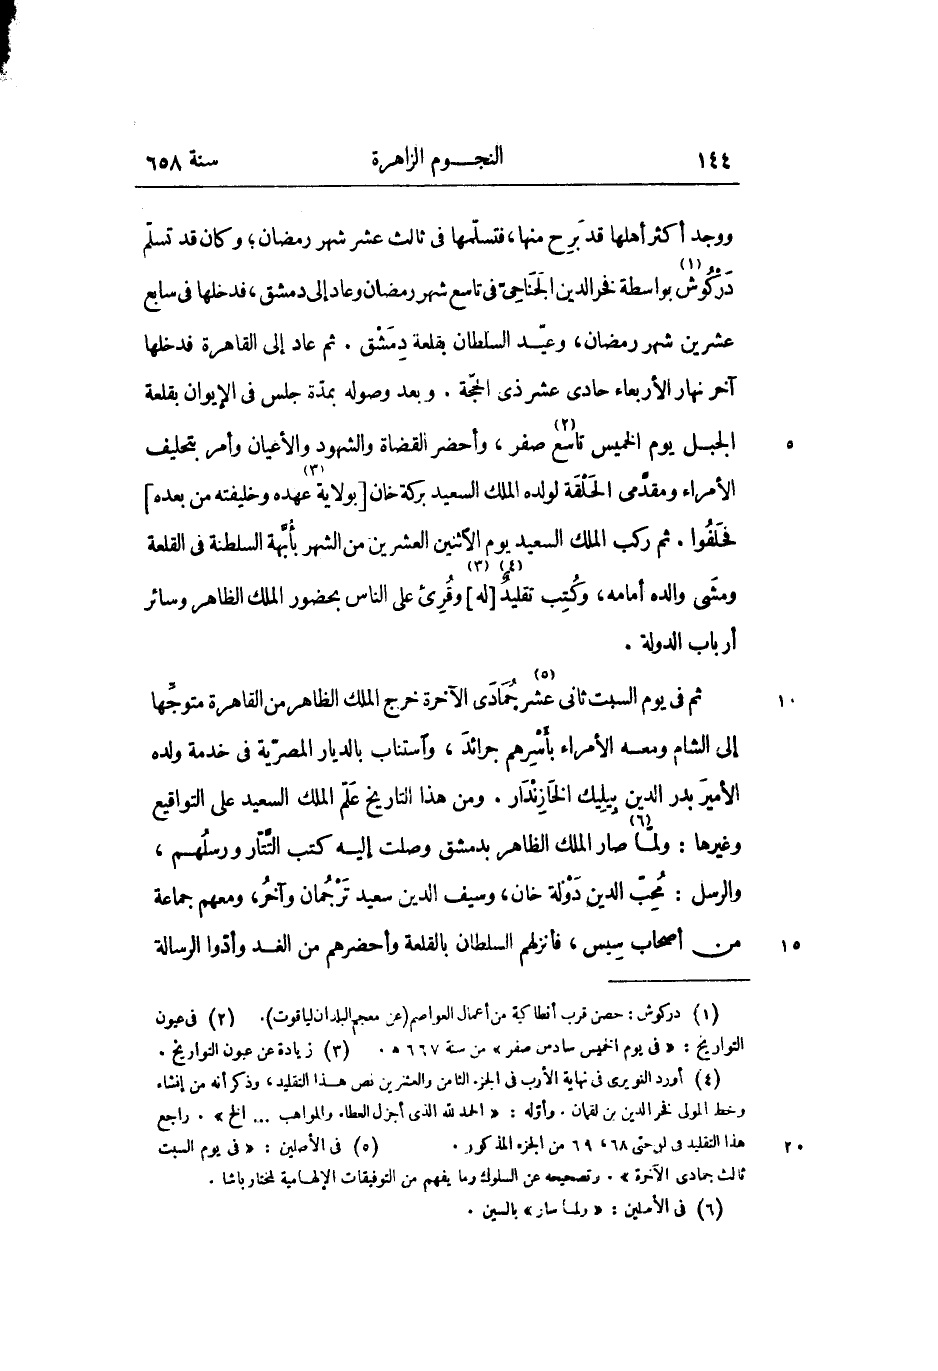 ١٤٤ النجوم الزاهرة سنة ٦٥٨
ووجد أكثر أهلها قد بَرِح منها، فتسلّمها فى ثالث عشر شهر رمضان؛ وكان قد تسلّم
دَرْكُوش (١) بواسطة فخر الدين الجَنَاحِىّ فى تاسع شهر رمضان وعاد إلى دمشق، فدخلها فى سابع
عشرين شهر رمضان، وعيّد السلطان بقلعة دِمَشْق . ثم عاد إلى القاهرة فدخلها
آخر نهار الأربعاء حادى عشر ذى الحِجّة . وبعد وصوله بمدّة جلس فى الإيوان بقلعة
الجبل يوم الخميس تاسع (٢) صفر ، وأحضر القضاة والشهود والأعيان وأمر بتحليف ٥
الأمراء ومقدَّمى الحَلْقَة لولده الملك السعيد بركة خان [بولاية (٣) عهده وخليفته من بعده]
فحَلَفُوا . ثم ركب الملك السعيد يوم الآثنين العشرين من الشهر بأُبَّهة السلطنة فى القلعة
ومشَى والده أمامه، وكُتِب تقليدٌ (٤) [له] (٣) وقُرِئ على الناس بحضور الملك الظاهر وسائر
أرباب الدولة .
ثم فى يوم السبت ثانى عشر (٥) جُمَادَى الآخرة خرج الملك الظاهر من القاهرة متوجِّها ١٠
إلى الشام ومعه الأمراء بأَسْرِهم جرائدَ ، وآستناب بالديار المصريّة فى خدمة ولده
الأميرَ بدر الدين بِيلِيك الخَازِنْدَار . ومن هذا التاريخ عَلّم الملك السعيد على التواقيع
وغيرها : ولمّا صار (٦) الملك الظاهر بدمشق وصلت إليه كتب التَّتَار ورسلُهم ،
والرسل : مُحِبّ الدين دَوْلَة خان، وسيف الدين سعيد تَرْجُمان وآخرُ، ومعهم جماعة
من أصحاب سِيس ، فأنزلهم السلطان بالقلعة وأحضرهم من الغد وأدّوا الرسالة ١٥
(١) دركوش : حصن قرب أنطاكية من أعمال العواصم (عن معجم البلدان لياقوت). (٢) فى عيون
التواريخ : « فى يوم الخميس سادس صفر » من سنة ٦٦٧ هـ . (٣) زيادة عن عيون التواريخ .
(٤) أورد النويرى فى نهاية الأرب فى الجزء الثامن والعشرين نص هذا التقليد، وذكر أنه من إنشاء
وخط المولى فخر الدين بن لقمان . وأوّله : « الحمد لله الذى أجزل العطاء والمواهب ... الخ » . راجع
هذا التقليد فى لوحتى ٦٨ ، ٦٩ من الجزء المذكور . (٥) فى الأصلين : « فى يوم السبت ٢٠
ثالث جمادى الآخرة » . وتصحيحه عن السلوك وما يفهم من التوفيقات الإلهامية لمختار باشا .
(٦) فى الأصلين : « ولما سار » بالسين .